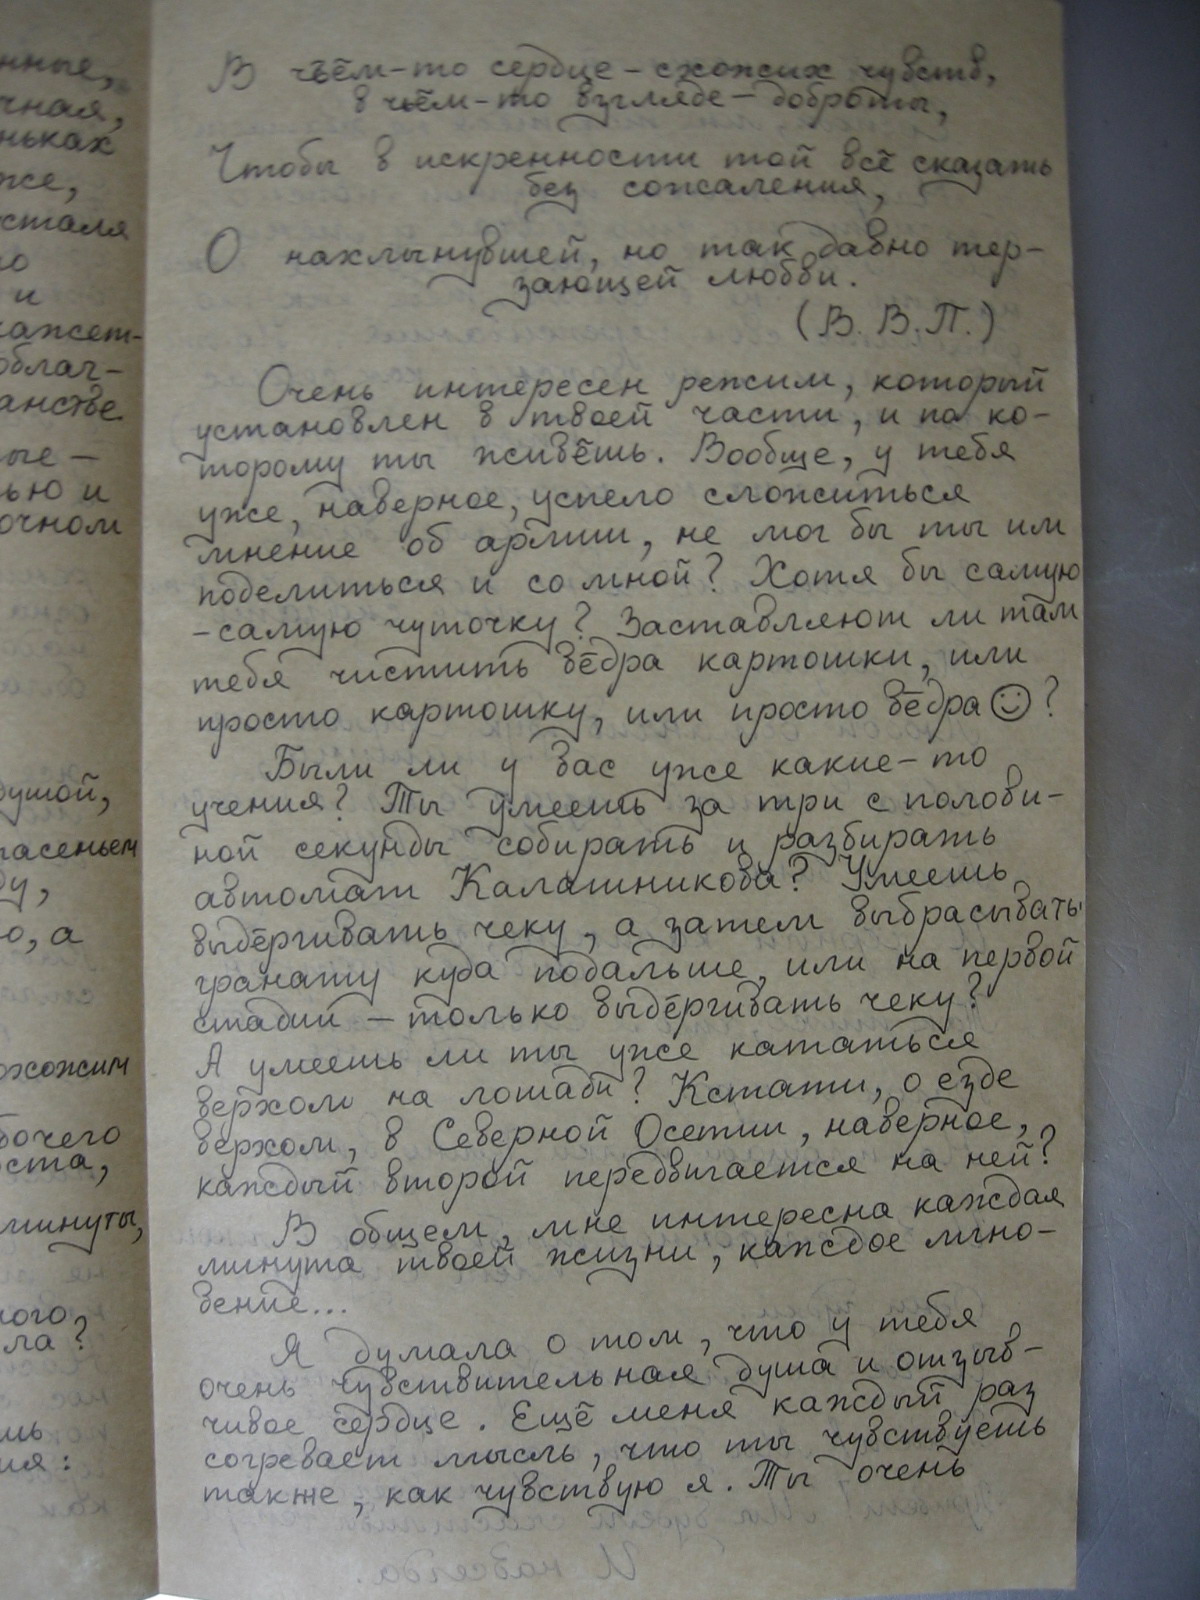 нные,
чная,
ньках
же,
сталя
о
и
кажет-
облач-
анстве
ые -
ью и
очном
душой,
пасеньем
ду,
о, а
охожим
бочего
оста,
минуты,
ного
ла?
шь
ия:
В чьём-то сердце - схожих чувств,
в чьём-то взгляде - доброты,
Чтобы в искренности той всё сказать
без сожаления,
О нахлынувшей, но так давно тер-
зающей любви.
(В. В. П.)
Очень интересен режим, который
установлен в твоей части, и по ко-
торому ты живёшь. Вообще, у тебя
уже, наверное, успело сложиться
мнение об армии, не мог бы ты им
поделиться и со мной? Хотя бы самую
-самую чуточку? Заставляют ли там
тебя чистить вёдра картошки, или
просто картошку, или просто вёдра☺?
Были ли у вас уже какие-то
учения? Ты умеешь за три с полови-
ной секунды собирать и разбирать
автомат Калашникова? Умеешь
выдёргивать чеку, а затем выбрасывать
гранату куда подальше, или на первой
стадии - только выдёргивать чеку?
А умеешь ли ты уже кататься
верхом на лошади? Кстати, о езде
верхом, в Северной Осетии, наверное,
каждый второй передвигается на ней?
В общем, мне интересна каждая
минута твоей жизни, каждое мгно-
вение...
Я думала о том, что у тебя
очень чувствительная душа и отзыв-
чивое сердце. Ещё меня каждый раз
согревает мысль, что ты чувствуешь
также, как чувствую я. Ты очень